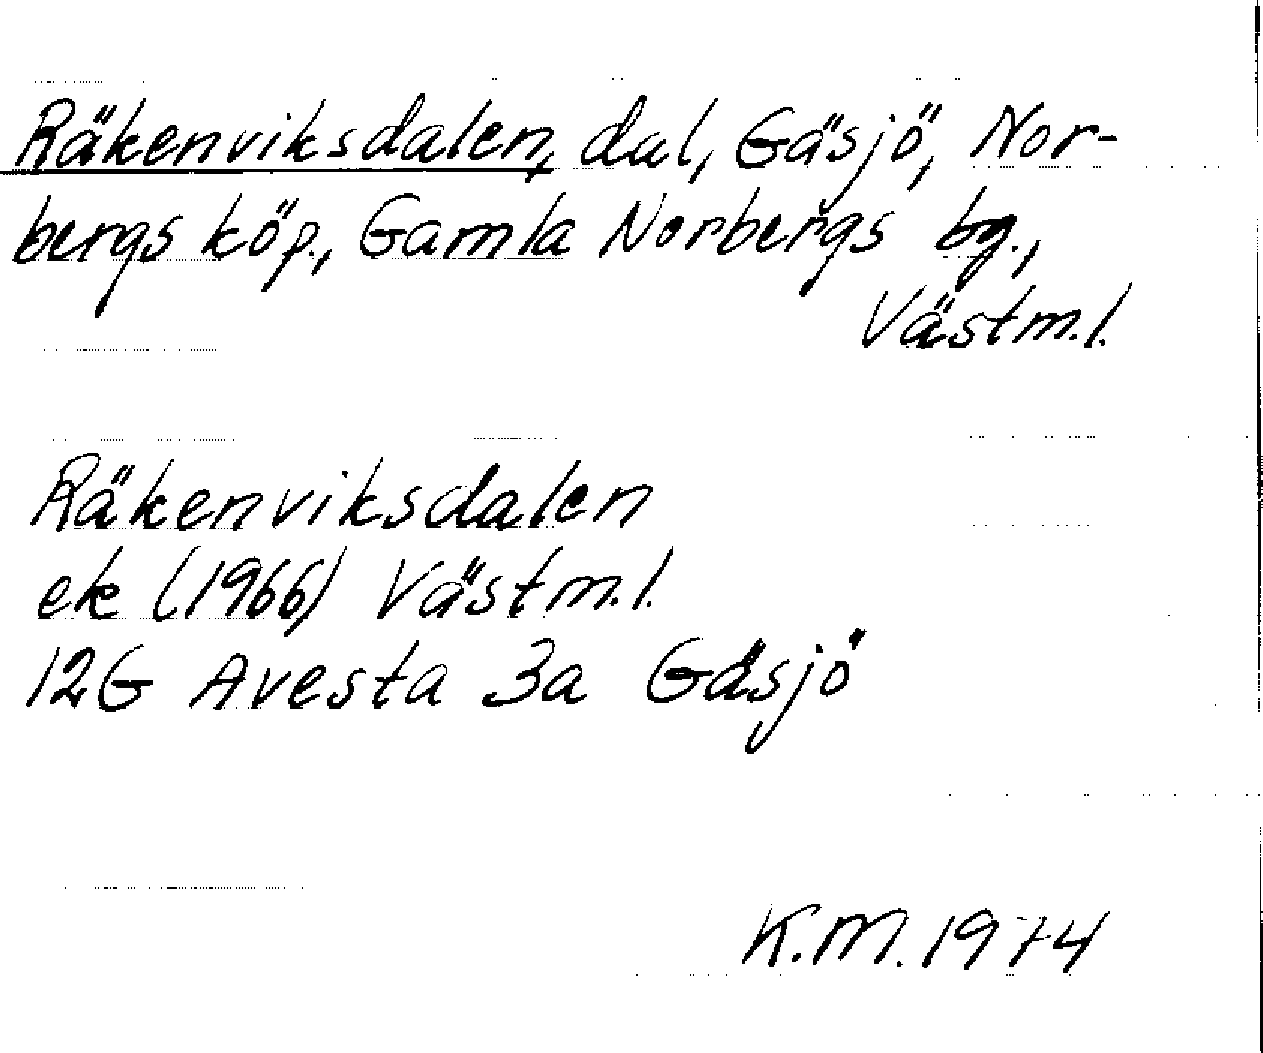 Räkenviksdalen, dal, Gäsjö, Nor-
bergs köp., Gamla Norbergs bg.,
Västm.l.
Räkenviksdalen
ek (1966) Västm.l.
12G Avesta 3a Gäsjö
K.M. 1974